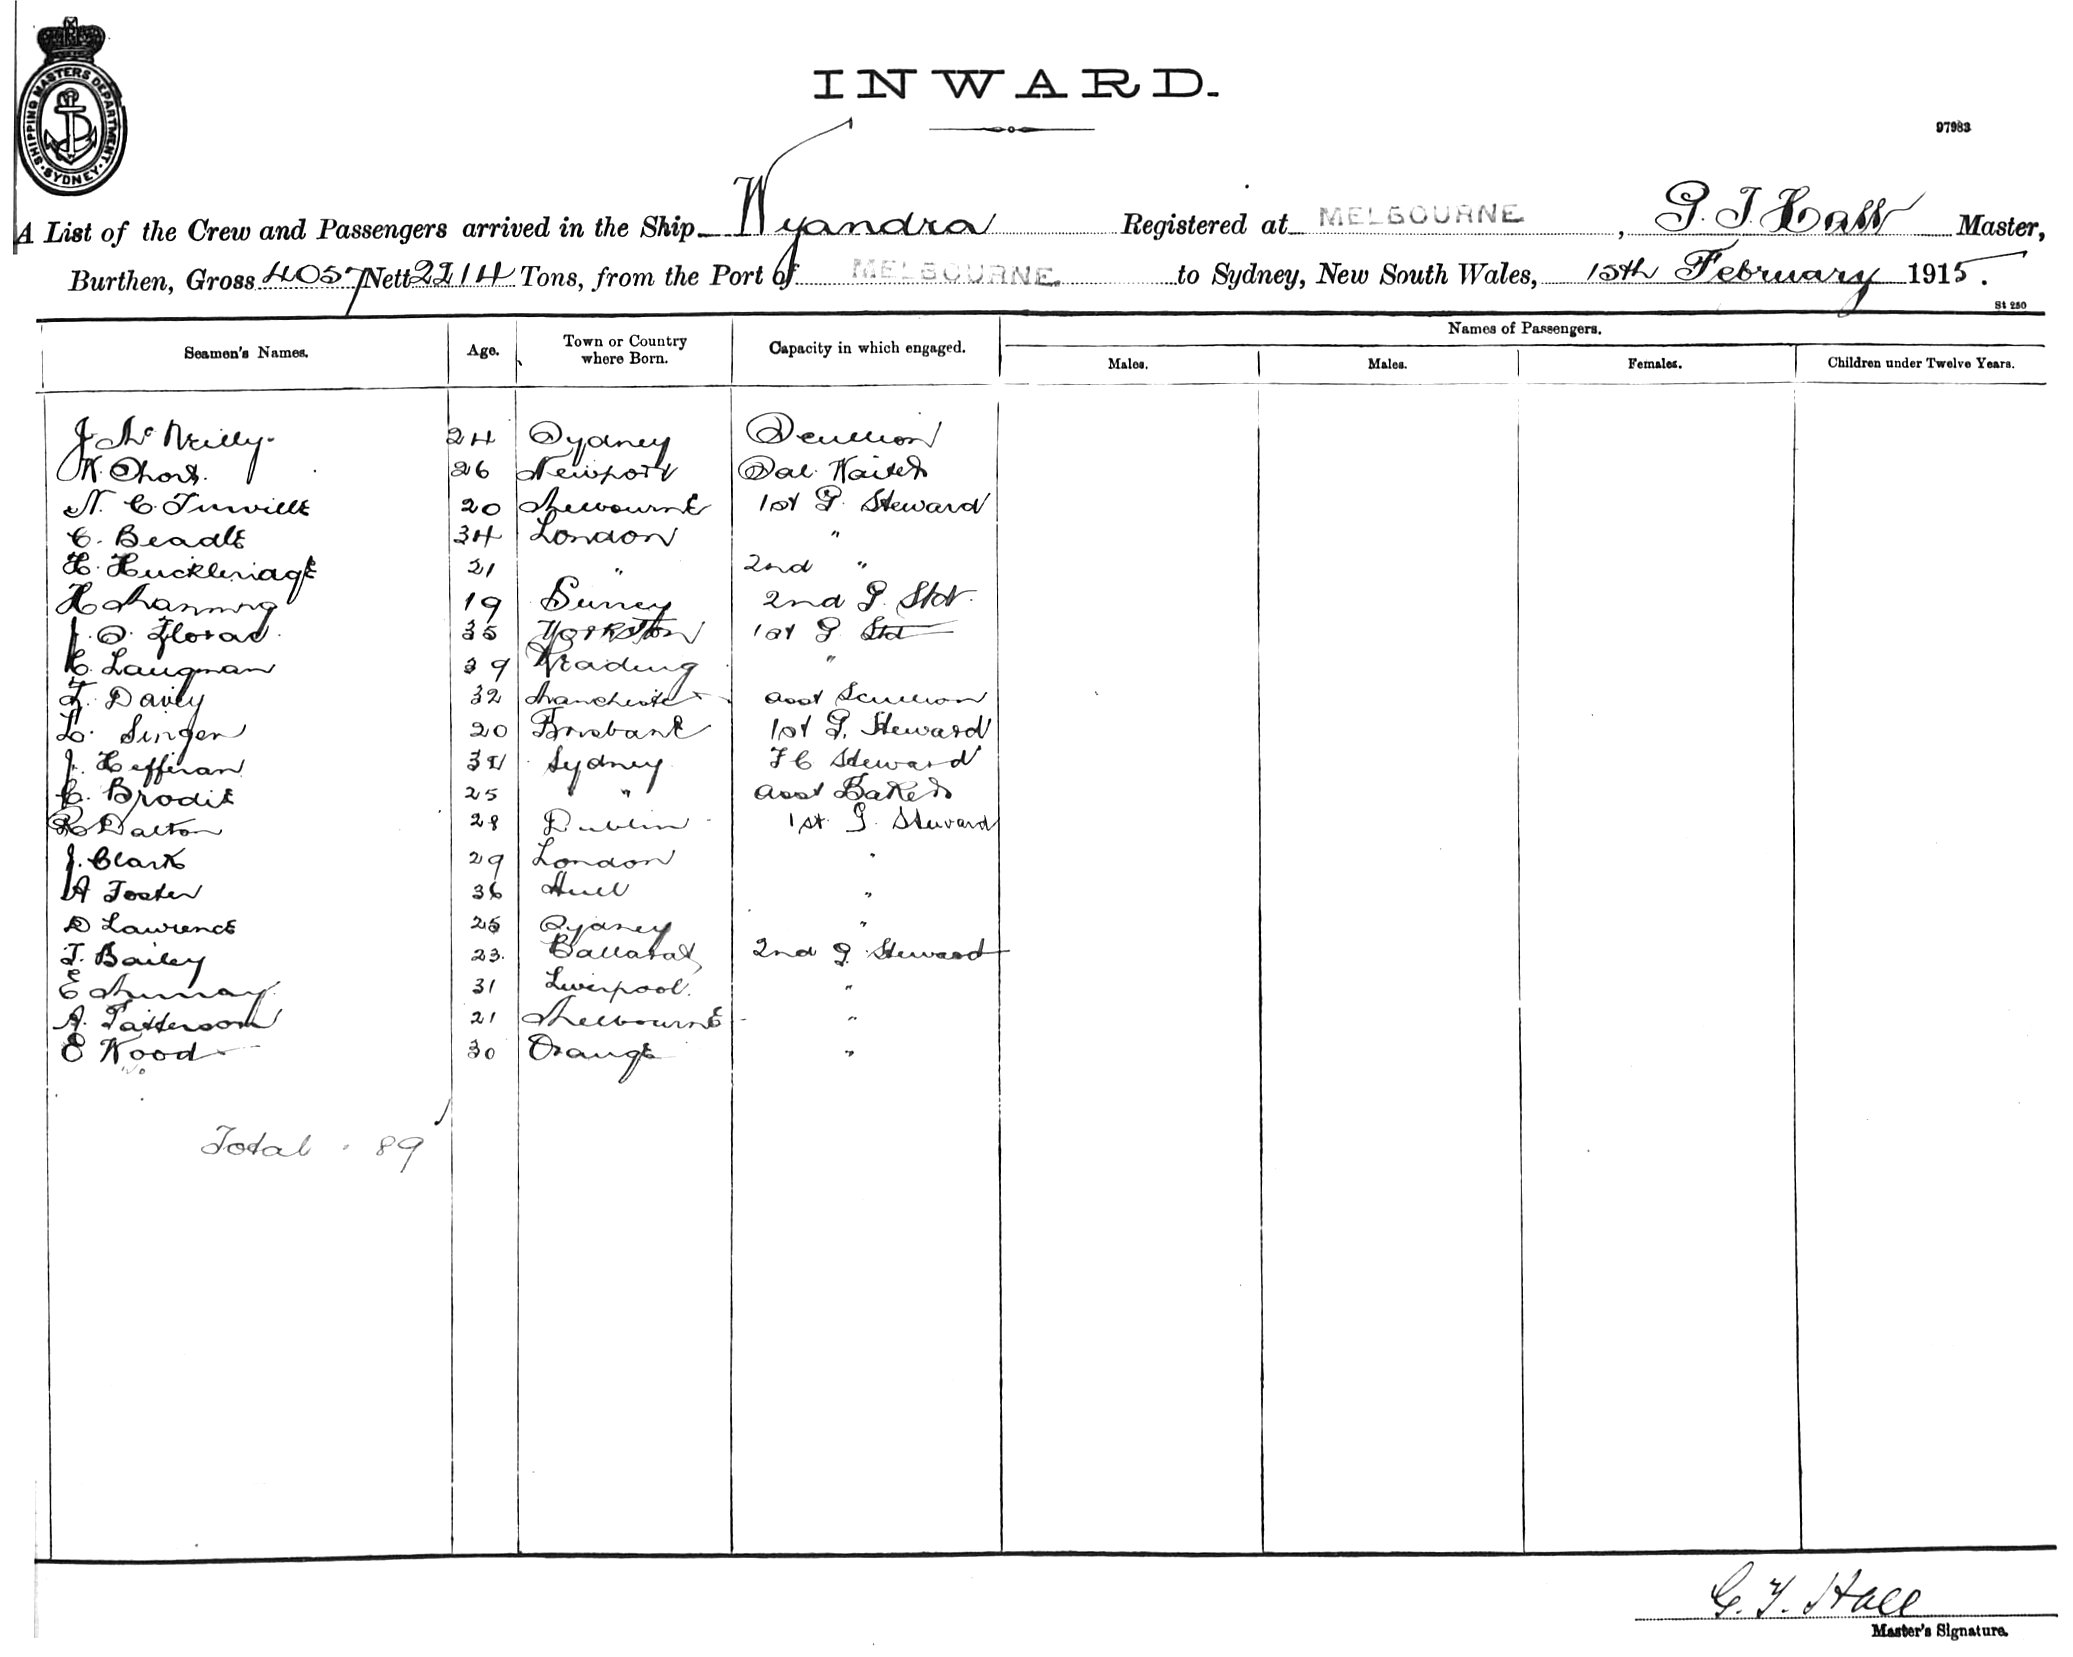 SHIPPING MASTERS DEPARTMENT SYDNEY
INWARD.
97983
A List of the Crew and Passengers arrived in the Ship Wyandra Registered at MELBOURNE, G. T. Hall Master,
Burthen, Gross 4057 Nett 2214 Tons, from the Port of MELBOURNE to Sydney, New South Wales, 15th February 1915.
St 250
Names of Passengers.
Seamen's Names. Age. Town or Country where Born. Capacity in which engaged. Males. Males. Females. Children under Twelve Years.
J. McNeilly 24 Sydney Scullion
W. Short. 26 Newport Sal. Waiter
N. C. 20 Melbourne 1st G. Steward
C. Beadle 34 London "
H. Huckleridge 21 " 2nd "
H Manning 19 Surrey 2nd G. Std.
J. O. 35 1st G Std
C. Langman 39 Reading "
F. Davey 32 Manchester asst Scullion
L. Singer 20 Brisbane 1st G. Steward
J. Heffernan Sydney F C Steward
C. Brodie 25 " asst Baker
R Dalton 28 Dublin 1st G. Steward
J. Clark 29 London "
A Foster 36 Hull "
D Lawrence 25 Sydney "
T. Bailey 23. Ballarat 2nd G Steward
E Murray. 31 Liverpool. "
A. Patterson 21 Melbourne "
E Wood 30 Orange "
Total . 89
G. T. Hall
Master's Signature.